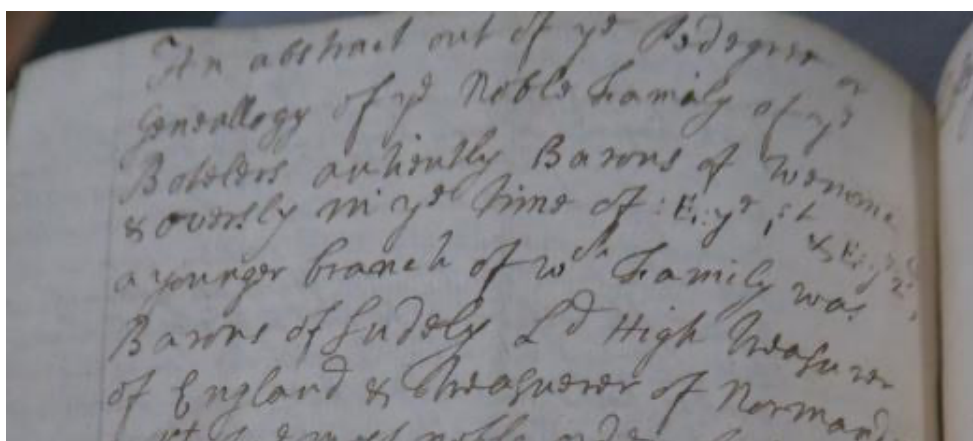 An abstract out of ye Pedegree or
Genealogy of ye Noble Family of ye
Botelers antiently Barons of Wemme
& Oversly in ye time of :E: ye 1st & E: ye 2d,
a younger branch of wch Family was
Barons of Sudely Ld High Treasurer
of England & Treasurer of Normand
most noble orde